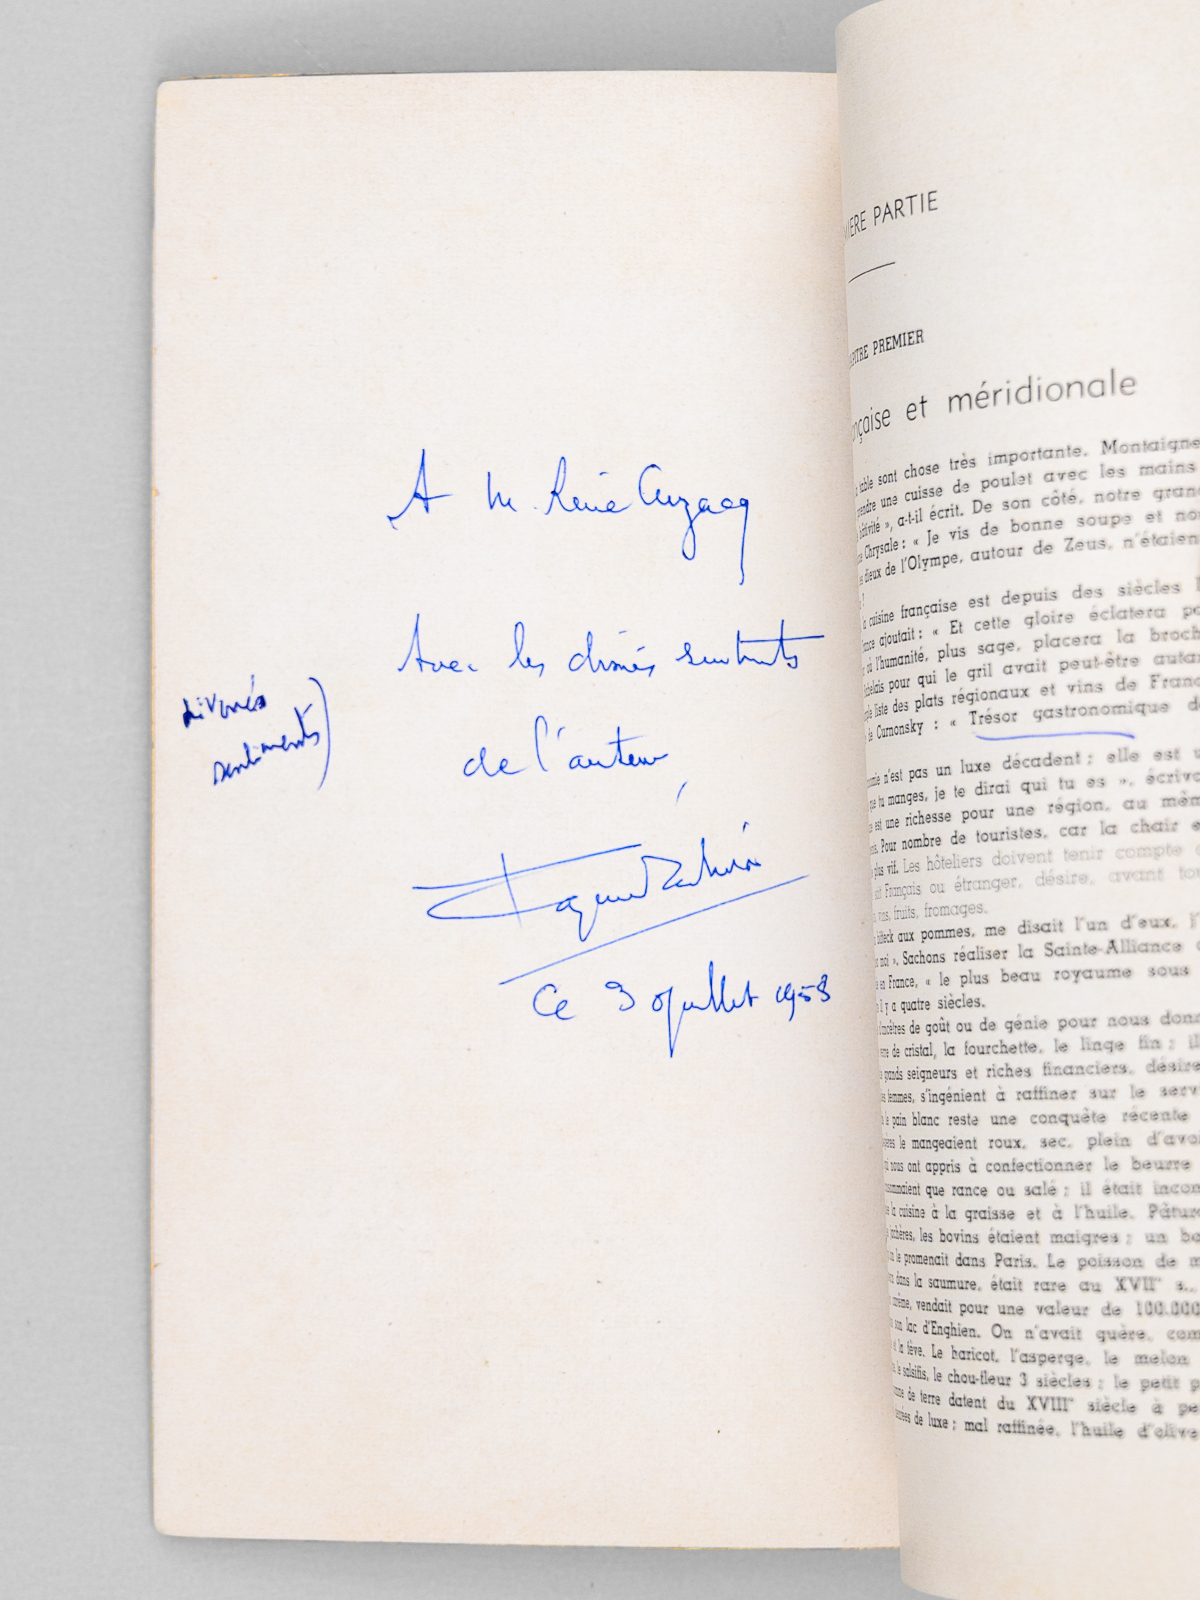 A M. René Cuzacq
Avec les divinés sentiments
de l'auteur
Ce 3 juillet 1953
divinés
sentiments)
PARTIE
PREMIER
et méridionale
sont chose très importante. Montaigne
une cuisse de poulet avec les mains
», a-t-il écrit. De son côté, notre
Chrysale : « Je vis de bonne soupe et
dieux de l'Olympe, autour de Zeus, n'étaient
cuisine française est depuis des siècles
ajoutait : « Et cette gloire éclatera
où l'humanité, plus sage, placera la
pour qui le gril avait peut-être
liste des plats régionaux et vins de
de Curnonsky : « Trésor gastronomique
n'est pas un luxe décadent ; elle est
que tu manges, je te dirai qui tu es »,
est une richesse pour une région, au
Pour nombre de touristes, car la chair
plus vif. Les hôteliers doivent tenir compte
Français ou étranger, désire, avant
vins, fruits, fromages.
aux pommes, me disait l'un d'eux,
moi ». Sachons réaliser la Sainte-Alliance
en France, « le plus beau royaume sous
il y a quatre siècles.
de goût ou de génie pour nous
de cristal, la fourchette, le linge fin ;
grands seigneurs et riches financiers,
femmes, s'ingénient à raffiner sur le
le pain blanc reste une conquête récente
le mangeaient roux, sec, plein
nous ont appris à confectionner le beurre
que rance ou salé ; il était
la cuisine à la graisse et à l'huile.
les bovins étaient maigres ; un
le promenait dans Paris. Le poisson de
dans la saumure, était rare au XVIIe s.,
vendait pour une valeur de 100.000
son lac d'Enghien. On n'avait guère,
et la fève. Le haricot, l'asperge, le melon
le salsifis, le chou-fleur 3 siècles ; le petit
de terre datent du XVIIIe siècle à
de luxe ; mal raffinée, l'huile d'olive